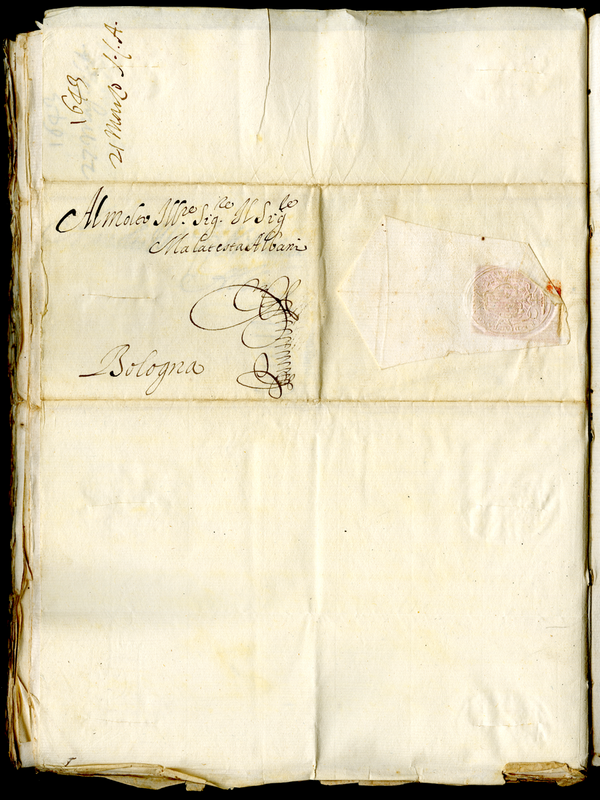 1643
21 Marzo
Al Molto Ill.re Sig.re Il Sig.le
Malatesta Albani
Bologna